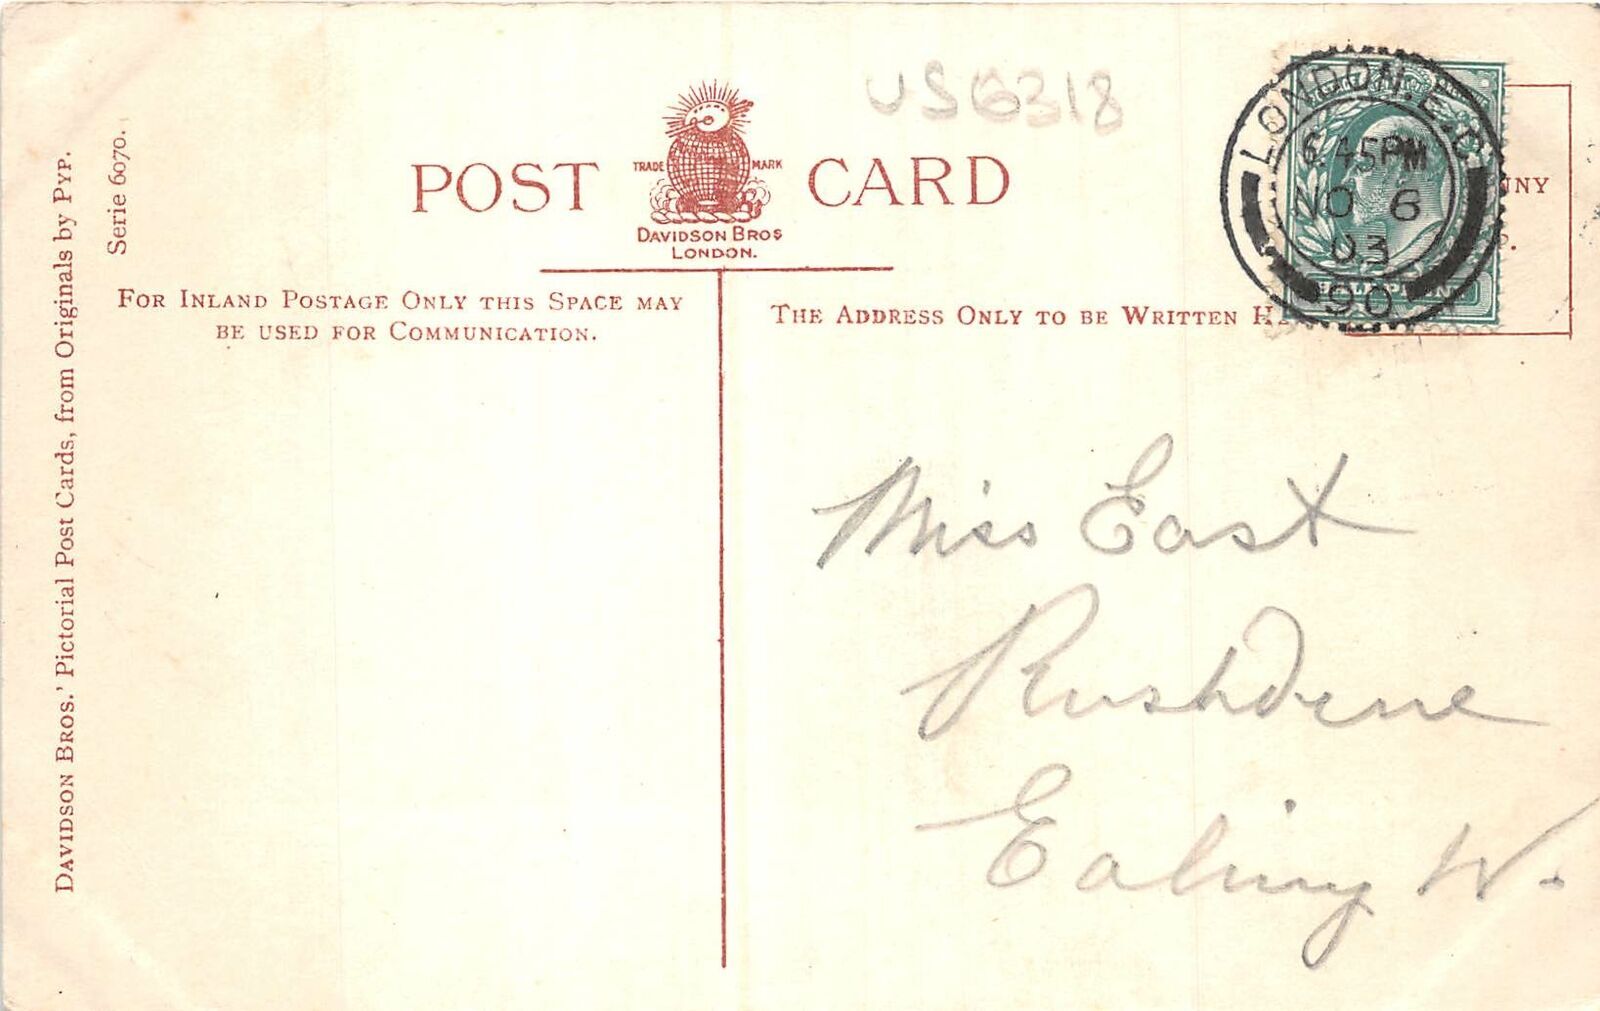 US6318
POST CARD
TRADE MARK
DAVIDSON BROS
LONDON.
LONDON. E.C
6.45PM
NO 6
03
90
NNY
P.
FOR INLAND POSTAGE ONLY THIS SPACE MAY
BE USED FOR COMMUNICATION.
THE ADDRESS ONLY TO BE WRITTEN
Miss East
Rushdene
Ealing W.
DAVIDSON BROS.' Pictorial Post Cards, from Originals by PYP.
Serie 6070.